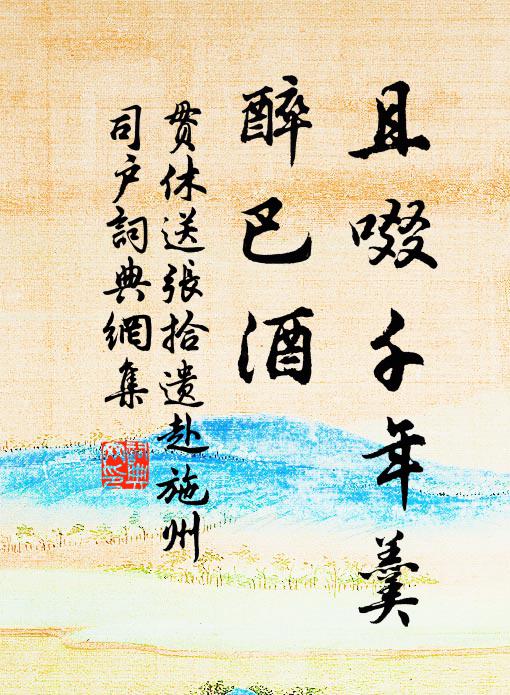 且啜千年羹
醉巴酒
贯休送張拾遗赴施州
司户詞典網集